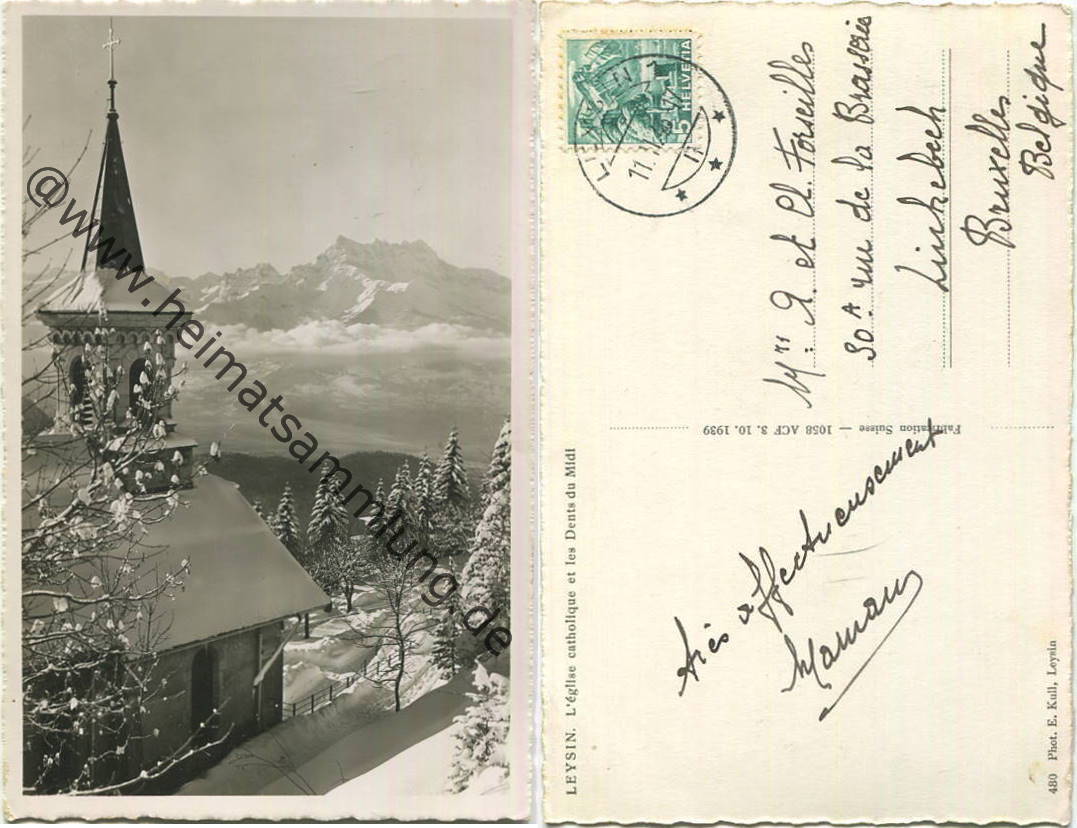 @www.heimatsammlung.de
HELVETIA
5
LEYSIN
LEYSIN. L'église catholique et les Dents du Midi
Très affectueusement
Maman
Fabrication Suisse — 1058 ACF 3. 10. 1939
480 Phot. E. Kull, Leysin
30A rue de la Brasserie
Linkebeek
Bruxelles
Belgique